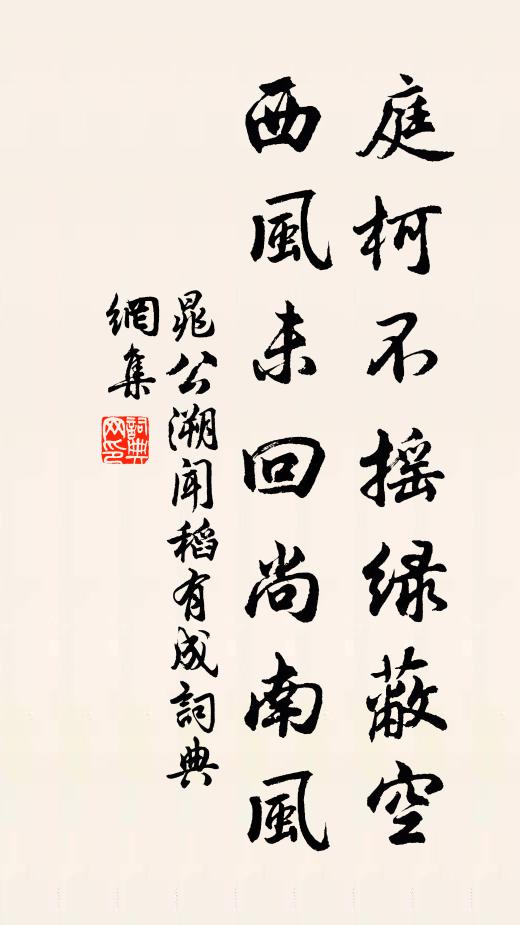 庭柯不摇緑蔽空
西風未回尚南風
晁公溯闻稻有成詞典
網集
詞典
网印